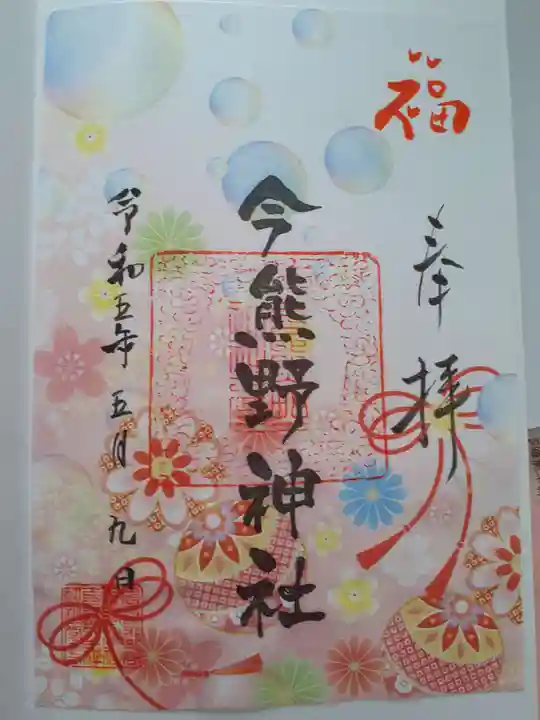 福
奉拝
今熊野神社
令和五年五月九日